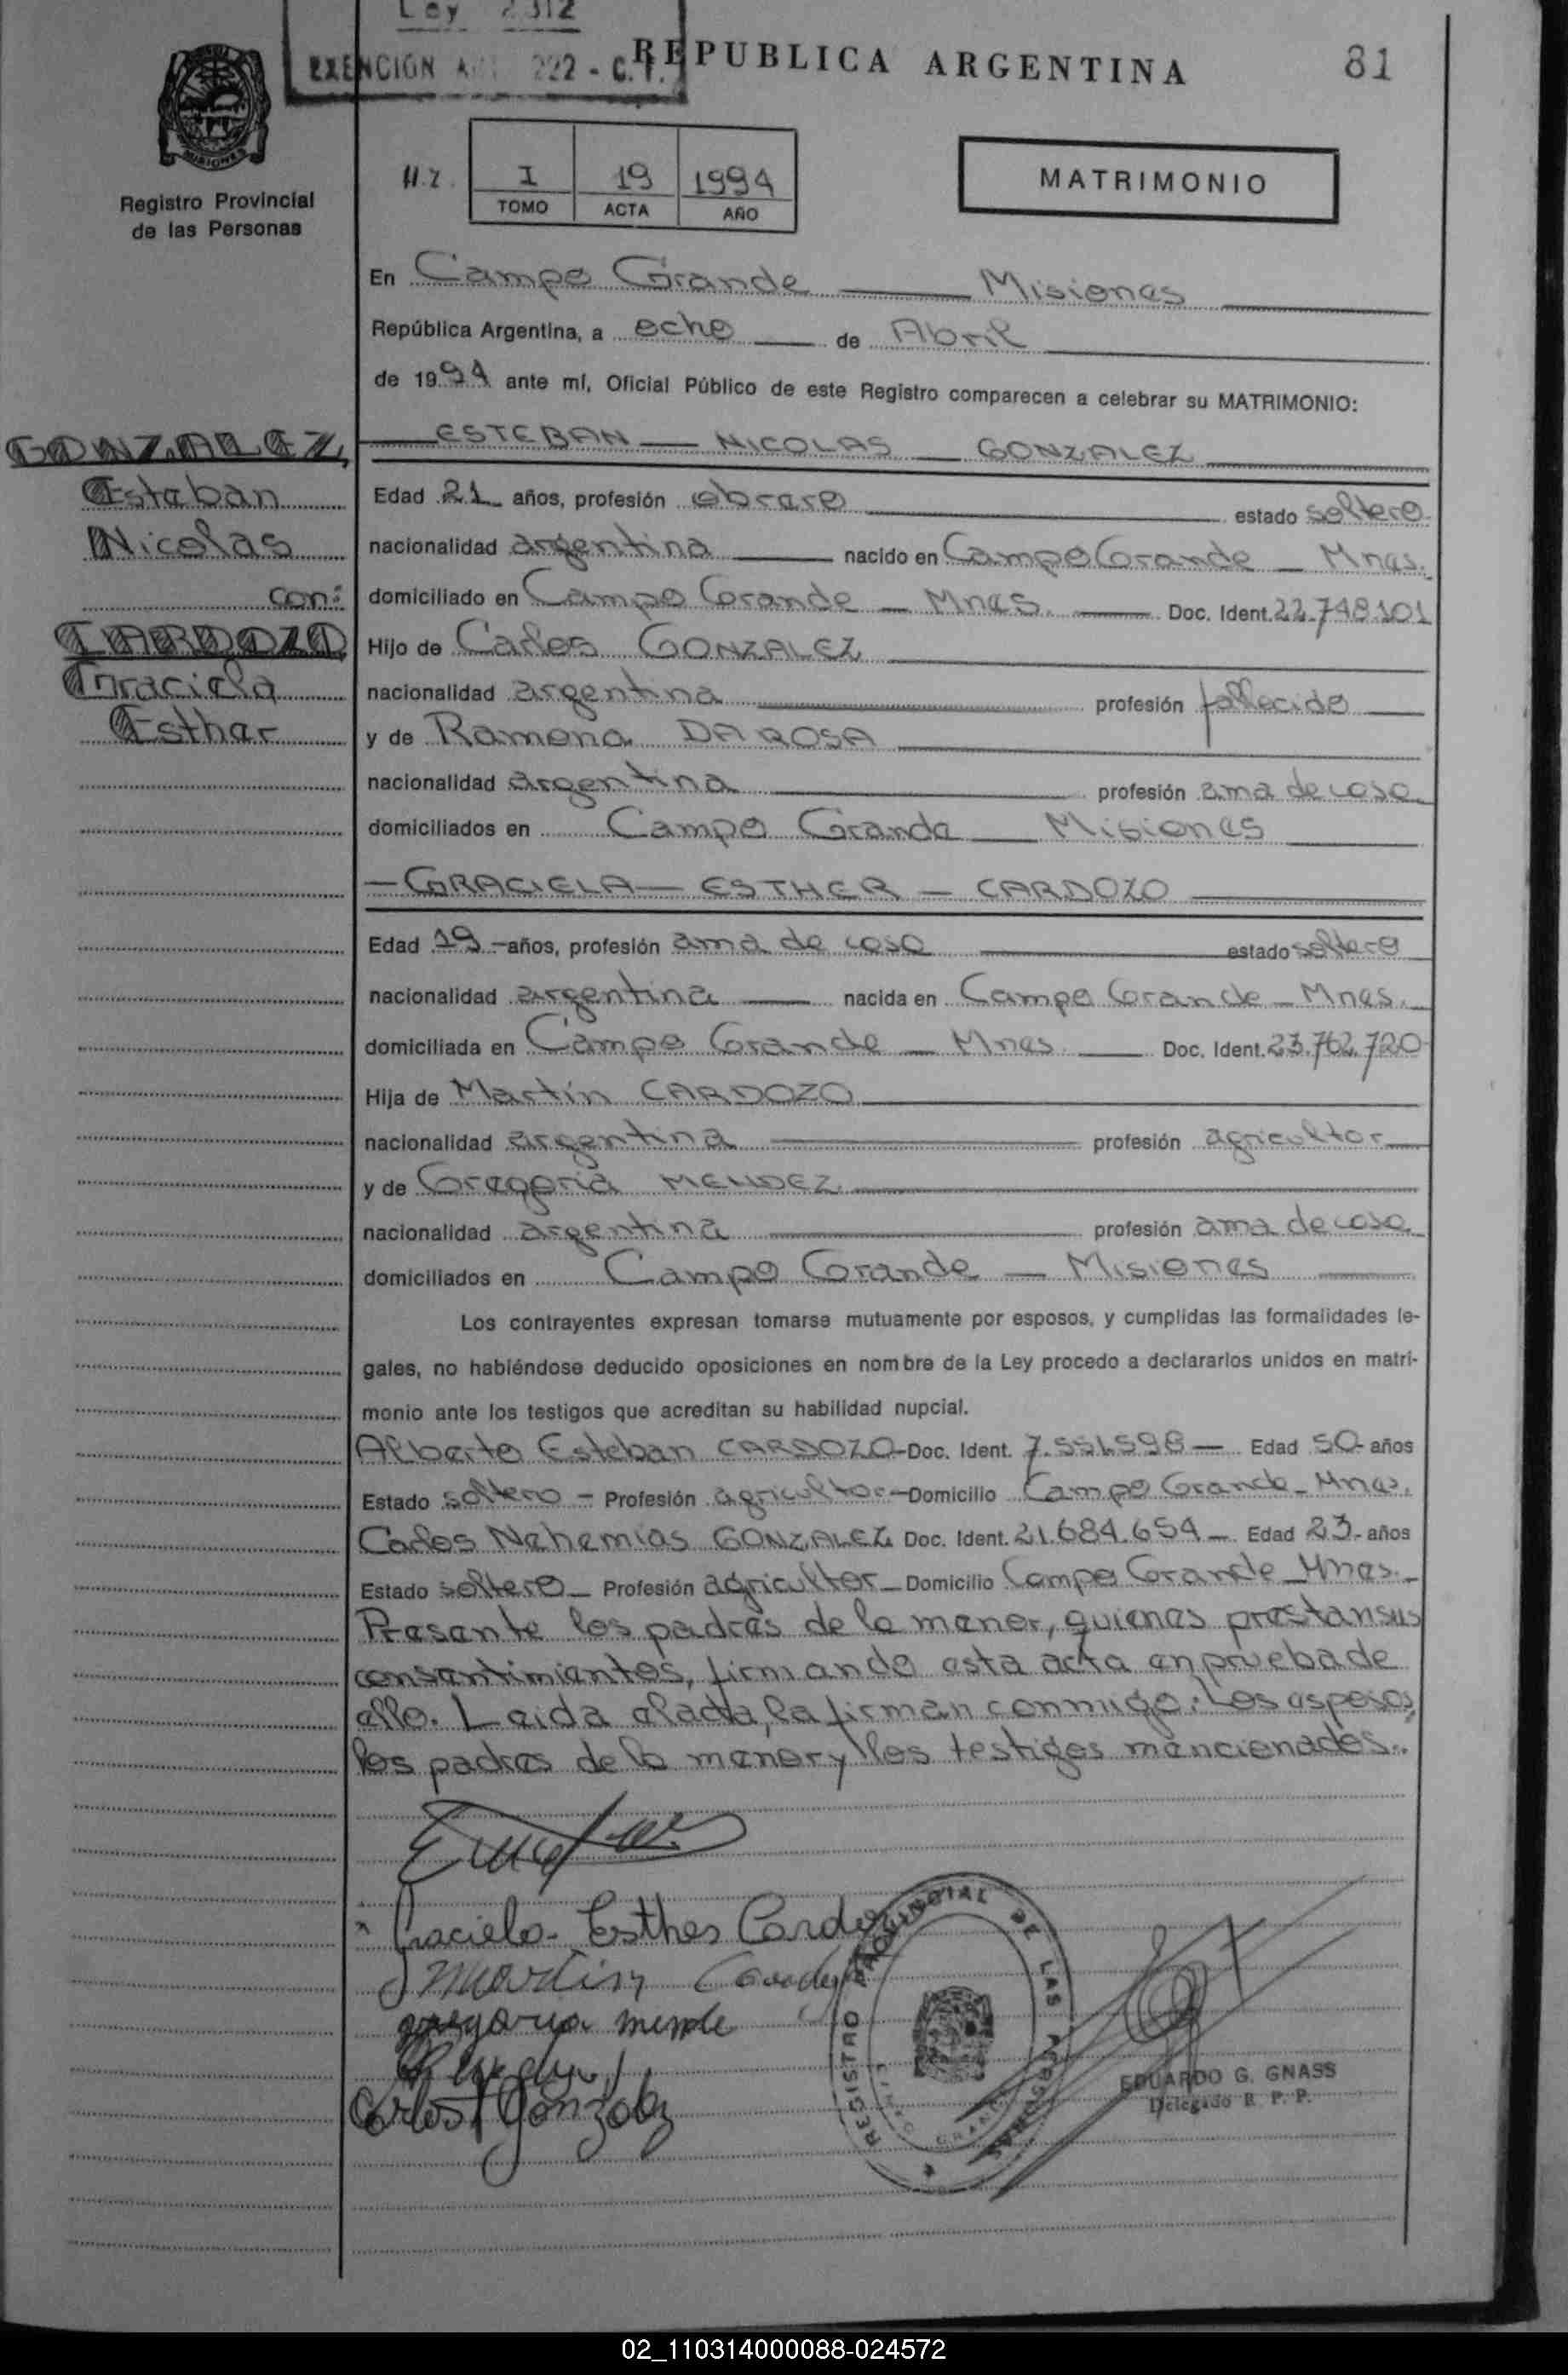 Ley 2312
EXENCIÓN ART 222 - C.F.
REPUBLICA ARGENTINA
81
MISIONES
Registro Provincial
de las Personas
I 19 1994
TOMO ACTA AÑO
MATRIMONIO
En Campo Grande Misiones
República Argentina, a ocho de Abril
de 1994 ante mí, Oficial Público de este Registro comparecen a celebrar su MATRIMONIO:
GONZALEZ,
Esteban
Nicolas
con:
CARDOZO
Graciela
Esther
ESTEBAN NICOLAS GONZALEZ
Edad 21 años, profesión obrero estado soltero
nacionalidad argentina nacido en Campo Grande - Mnes.
domiciliado en Campo Grande - Mnes. Doc. Ident. 22.748.101
Hijo de Carlos GONZALEZ
nacionalidad argentina profesión fallecido
y de Ramona DA ROSA
nacionalidad argentina profesión ama de casa
domiciliados en Campo Grande Misiones
- GRACIELA - ESTHER - CARDOZO
Edad 19 - años, profesión ama de casa estado soltero
nacionalidad argentina nacida en Campo Grande - Mnes.
domiciliada en Campo Grande - Mnes. Doc. Ident. 23.762.720
Hija de Martín CARDOZO
nacionalidad argentina profesión agricultor
y de Gregoria MENDEZ
nacionalidad argentina profesión ama de casa
domiciliados en Campo Grande - Misiones
Los contrayentes expresan tomarse mutuamente por esposos, y cumplidas las formalidades le-
gales, no habiéndose deducido oposiciones en nombre de la Ley procedo a declararlos unidos en matri-
monio ante los testigos que acreditan su habilidad nupcial.
Alberto Esteban CARDOZO - Doc. Ident. 7.551.598 - Edad 50 - años
Estado soltero - Profesión agricultor - Domicilio Campo Grande - Mnes.
Carlos Nehemias GONZALEZ Doc. Ident. 21.684.654 - Edad 23 - años
Estado soltero - Profesión agricultor - Domicilio Campo Grande - Mnes. -
Presente los padres de la menor, quienes prestan sus
consentimientos, firmando esta acta en prueba de
ello. Leida el acta, la firman conmigo: Los esposos,
los padres de la menor y los testigos mencionados..
Graciela Esther Cardozo
Martin Cardozo
gregoria mende
Carlos N Gonzalez
REGISTRO PROVINCIAL DE LAS PERSONAS
CAMPO GRANDE
EDUARDO G. GNASS
Delegado R. P. P.
02_110314000088-024572